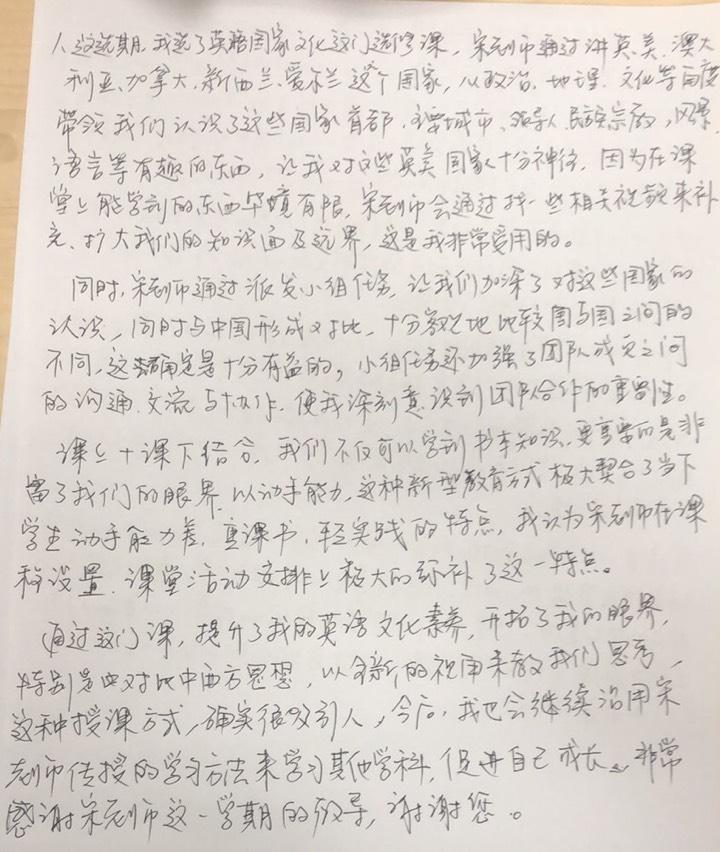 人这学期，我选了英语国家文化这门选修课，宋老师通过讲英、美、澳大
利亚、加拿大、新西兰、爱尔兰这个国家，从政治、地理、文化等角度
带领我们认识了这些国家首都、主要城市、领导人、民族宗教、风景、
语言等有趣的东西，让我对这些英美国家十分神往，因为在课
堂上能学到的东西毕境有限，宋老师会通过找一些相关视频来补
充、扩大我们的知识面及远界，这是我非常受用的。
同时，宋老师通过派发小组任务，让我们加深了对这些国家的
认识，同时与中国形成对比，十分客观地比较国与国之间的
不同，这确定是十分有益的，小组任务还加强了团队成员之间
的沟通、交流与协作，使我深刻意识到团队合作的重要性。
课上+课下结合，我们不仅可以学到书本知识，更重要的是丰
富了我们的眼界，以动手能力，这种新型教育方式极大契合了当下
学生动手能力差，重课书，轻实践的特点，我认为宋老师在课
程设置、课堂活动安排上极大的弥补了这一特点。
通过这门课，提升了我的英语文化素养，开拓了我的眼界，
特别是对比中西方思想，以全新的视角来教我们思考，
这种授课方式，确实很吸引人，今后，我也会继续沿用宋
老师传授的学习方法来学习其他学科，促进自己成长。非常
感谢宋老师这一学期的教导，谢谢您。